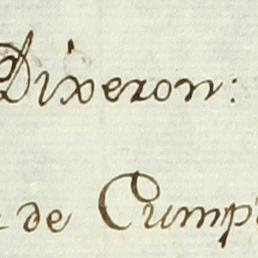 Dixeron:
de Cump